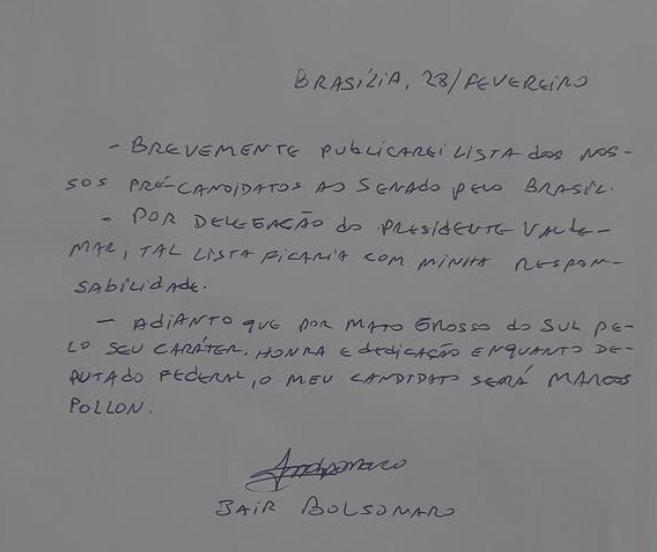 BRASÍLIA, 28/FEVEREIRO
- BREVEMENTE PUBLICAREI LISTA dos NOS-
SOS PRÉ-CANDIDATOS AO SENADO PELO BRASIL.
- POR DELEGAÇÃO do PRESIDENTE VALDE-
MAR, TAL LISTA FICARIA COM MINHA RESPON-
SABILIDADE.
- ADIANTO QUE POR MATO GROSSO do SUL PE-
LO SEU CARÁTER, HONRA E DEDICAÇÃO ENQUANTO DE-
PUTADO FEDERAL, O MEU CANDIDATO SERÁ MARCOS
POLLON.
JAIR BOLSONARO